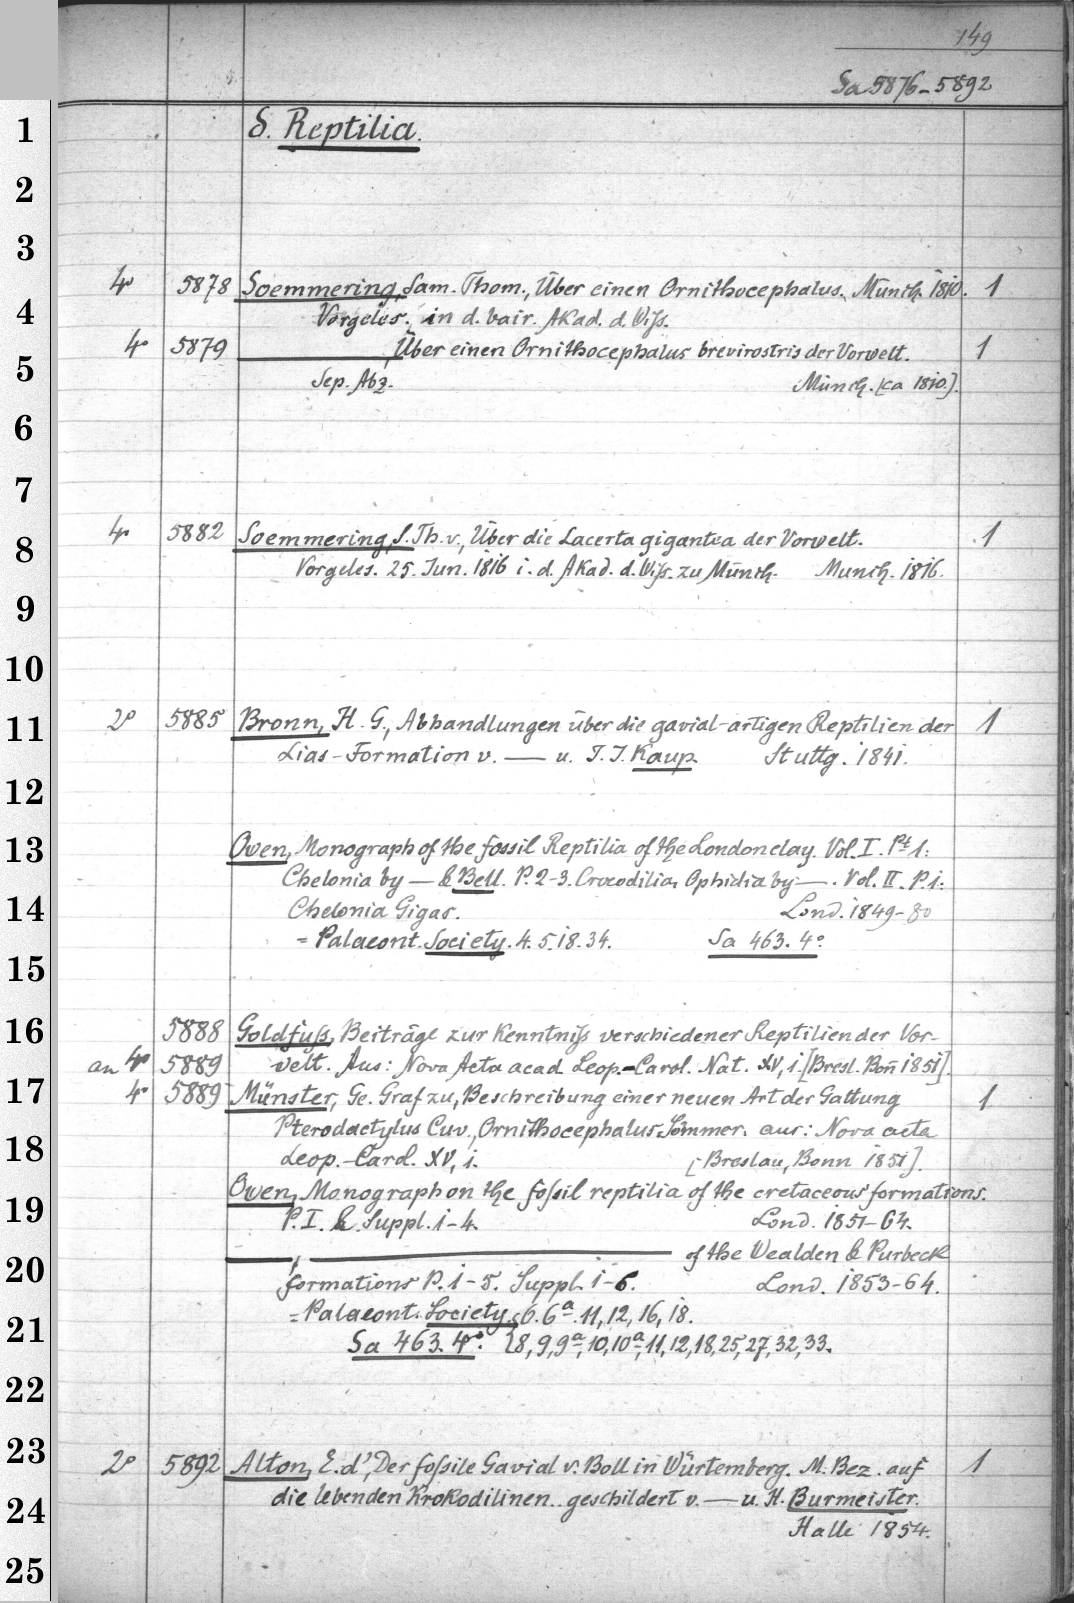 149
Sa 5876-5892
1
δ. Reptilia.
2
3
4° 5878 Soemmering, Sam. Thom., Über einen Ornithocephalus. Münch. 1810. 1
4
Vorgeles. in d. bair. Akad. d. Wiss.
4° 5879 ——— Über einen Ornithocephalus brevirostris der Vorwelt. 1
5
Sep. Abz. Münch. [ca 1810.]
6
7
4° 5882 Soemmering, S. Th. v., Über die Lacerta gigantea der Vorwelt. 1
8
Vorgeles. 25. Jun. 1816 i. d. Akad. d. Wiss. zu Münch. Munch. 1816.
9
10
2° 5885 Bronn, H. G., Abhandlungen über die gavial-artigen Reptilien der 1
11
Lias-Formation v. — u. J. J. Kaup. Stuttg. 1841.
12
13
Owen, Monograph of the fossil Reptilia of the Londonclay. Vol. I. Pt 1:
Chelonia by — & Bell. P. 2-3. Crocodilia, Ophidia by —. Vol. II. P. 1:
14
Chelonia Gigas. Lond. 1849-80
= Palaeont. Society. 4. 5. 18. 34. Sa 463. 4°.
15
16
5888 Goldfuß, Beiträge zur Kenntniß verschiedener Reptilien der Vor-
an 4° 5889 welt. Aus: Nova Acta acad Leop.-Carol. Nat. XV, 1. [Bresl. Bon̄ 1831].
17
4° 5889 Münster, Ge. Graf zu, Beschreibung einer neuen Art der Gattung 1
Pterodactylus Cuv., Ornithocephalus Sömmer. aus: Nova acta
18
Leop.-Carol. XV, 1. [Breslau, Bonn 1831].
19
Owen, Monograph on the fossil reptilia of the cretaceous formations.
P. I. & Suppl. 1-4. Lond. 1851-64.
20
———, ——— of the Wealden & Purbeck
formations P. 1-5. Suppl. 1-6. Lond. 1853-64.
21
= Palaeont. Society. 6. 6a. 11, 12, 16, 18.
Sa 463. 4°. 8, 9, 9a, 10, 10a, 11, 12, 18, 25, 27, 32, 33.
22
23
2° 5892 Alton, E. d', Der fossile Gavial v. Boll in Würtemberg. M. Bez. auf 1
24
die lebenden Krokodilinen geschildert v. — u. H. Burmeister.
Halle 1854.
25